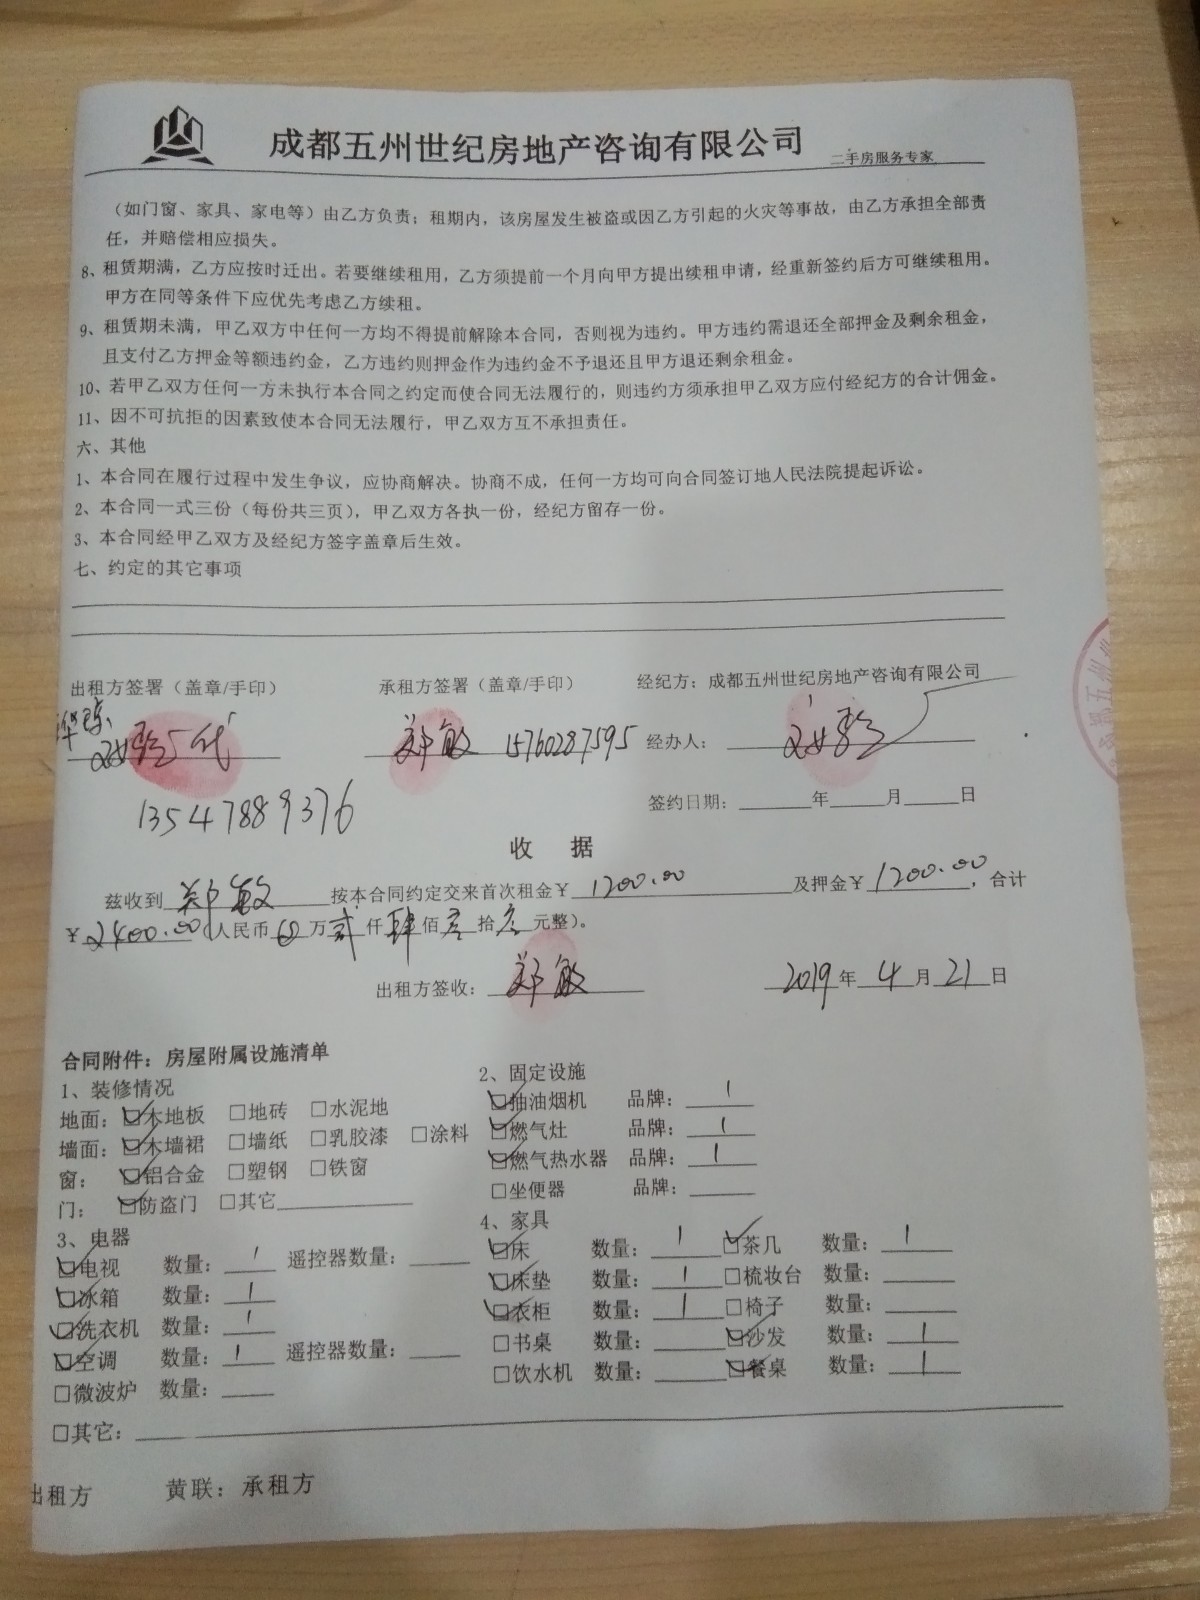 成都五州世纪房地产咨询有限公司 二手房服务专家
（如门窗、家具、家电等）由乙方负责；租期内，该房屋发生被盗或因乙方引起的火灾等事故，由乙方承担全部责
任，并赔偿相应损失。
8、租赁期满，乙方应按时迁出。若要继续租用，乙方须提前一个月向甲方提出续租申请，经重新签约后方可继续租用。
甲方在同等条件下应优先考虑乙方续租。
9、租赁期未满，甲乙双方中任何一方均不得提前解除本合同，否则视为违约。甲方违约需退还全部押金及剩余租金，
且支付乙方押金等额违约金，乙方违约则押金作为违约金不予退还且甲方退还剩余租金。
10、若甲乙双方任何一方未执行本合同之约定而使合同无法履行的，则违约方须承担甲乙双方应付经纪方的合计佣金。
11、因不可抗拒的因素致使本合同无法履行，甲乙双方互不承担责任。
六、其他
1、本合同在履行过程中发生争议，应协商解决。协商不成，任何一方均可向合同签订地人民法院提起诉讼。
2、本合同一式三份（每份共三页），甲乙双方各执一份，经纪方留存一份。
3、本合同经甲乙双方及经纪方签字盖章后生效。
七、约定的其它事项
出租方签署（盖章/手印） 承租方签署（盖章/手印） 经纪方：成都五州世纪房地产咨询有限公司
代 郑敏 15760287595 经办人：
13547889376 签约日期： 年 月 日
收 据
兹收到 郑敏 按本合同约定交来首次租金￥ 1200.00 及押金￥ 1200.00 ，合计
￥ 2400.00 （人民币 万 贰 仟 肆 佰 拾 元整）。
出租方签收： 郑敏 2019 年 4 月 21 日
合同附件：房屋附属设施清单
1、装修情况 2、固定设施
地面：☑木地板 □地砖 □水泥地 ☑抽油烟机 品牌： 1
墙面：☑木墙裙 □墙纸 □乳胶漆 □涂料 ☑燃气灶 品牌： 1
窗： ☑铝合金 □塑钢 □铁窗 ☑燃气热水器 品牌： 1
门： ☑防盗门 □其它 □坐便器 品牌：
3、电器 4、家具
☑电视 数量： 1 遥控器数量： ☑床 数量： 1 ☑茶几 数量： 1
☑冰箱 数量： 1 ☑床垫 数量： 1 □梳妆台 数量：
☑洗衣机 数量： 1 ☑衣柜 数量： 1 □椅子 数量：
☑空调 数量： 1 遥控器数量： □书桌 数量： ☑沙发 数量： 1
□微波炉 数量： □饮水机 数量： ☑餐桌 数量： 1
□其它：
出租方 黄联：承租方